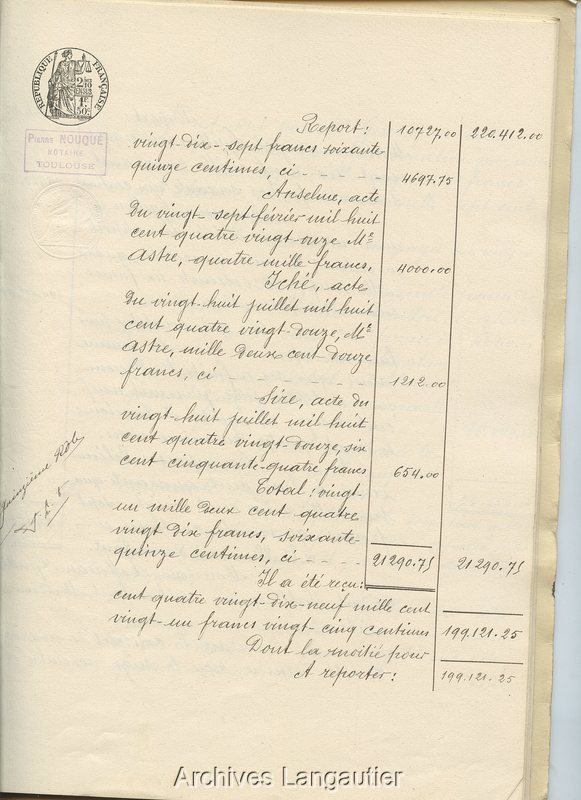 RÉPUBLIQUE FRANÇAISE
2/10 1883
1F 50C
PIERRE NOUQUÉ
NOTAIRE
TOULOUSE
Report : 10727.00 220.412.00
vingt-dix-sept francs soixante-
quinze centimes, ci - - - - 4697.75
Anselme, acte
du vingt-sept février mil huit
cent quatre vingt-onze Me
Astre, quatre mille francs, 4000.00
Iché, acte
du vingt-huit juillet mil huit
cent quatre vingt-douze, Me
Astre, mille deux cent douze
francs, ci - - - - - - - 1212.00
Sire, acte du
vingt-huit juillet mil huit
cent quatre vingt-douze, six
cent cinquante-quatre francs 654.00
Total : vingt-
un mille deux cent quatre
vingt dix francs, soixante-
quinze centimes, ci - - - - 21290.75 21290.75
Il a été reçu :
cent quatre vingt-dix-neuf mille cent
vingt-un francs vingt-cinq centimes 199.121.25
Dont la moitié pour
A reporter : 199.121.25
quinzième Rôle
Archives Langautier